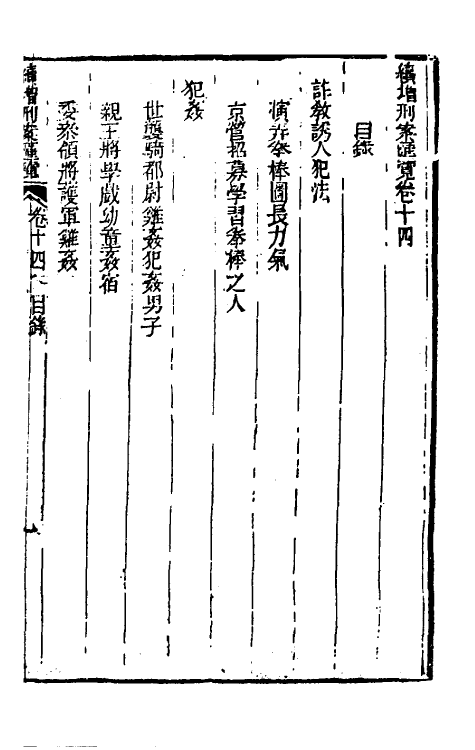 續增刑案匯覽卷十四
目錄
詐教誘人犯法
演弄拳棒圖長力氣
京營招募學習拳棒之人
犯姦
世襲騎都尉雞姦犯姦男子
親王將學戲幼童姦宿
委參領將護軍雞姦
續增刑案匯覽 卷十四 目錄 一